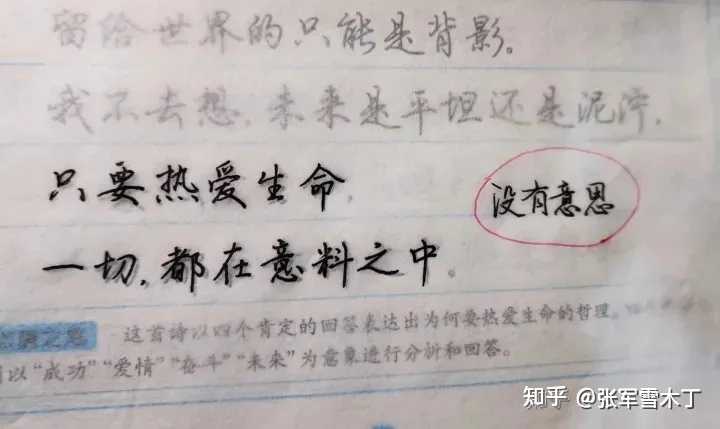 留给世界的只能是背影。
我不去想,未来是平坦还是泥泞,
只要热爱生命,
没有意思
一切,都在意料之中。
这首诗以四个肯定的回答表达出为何要热爱生命的哲理。
以“成功”“爱情”“奋斗”“未来”为意象进行分析和回答。
知乎 @张军雪木丁